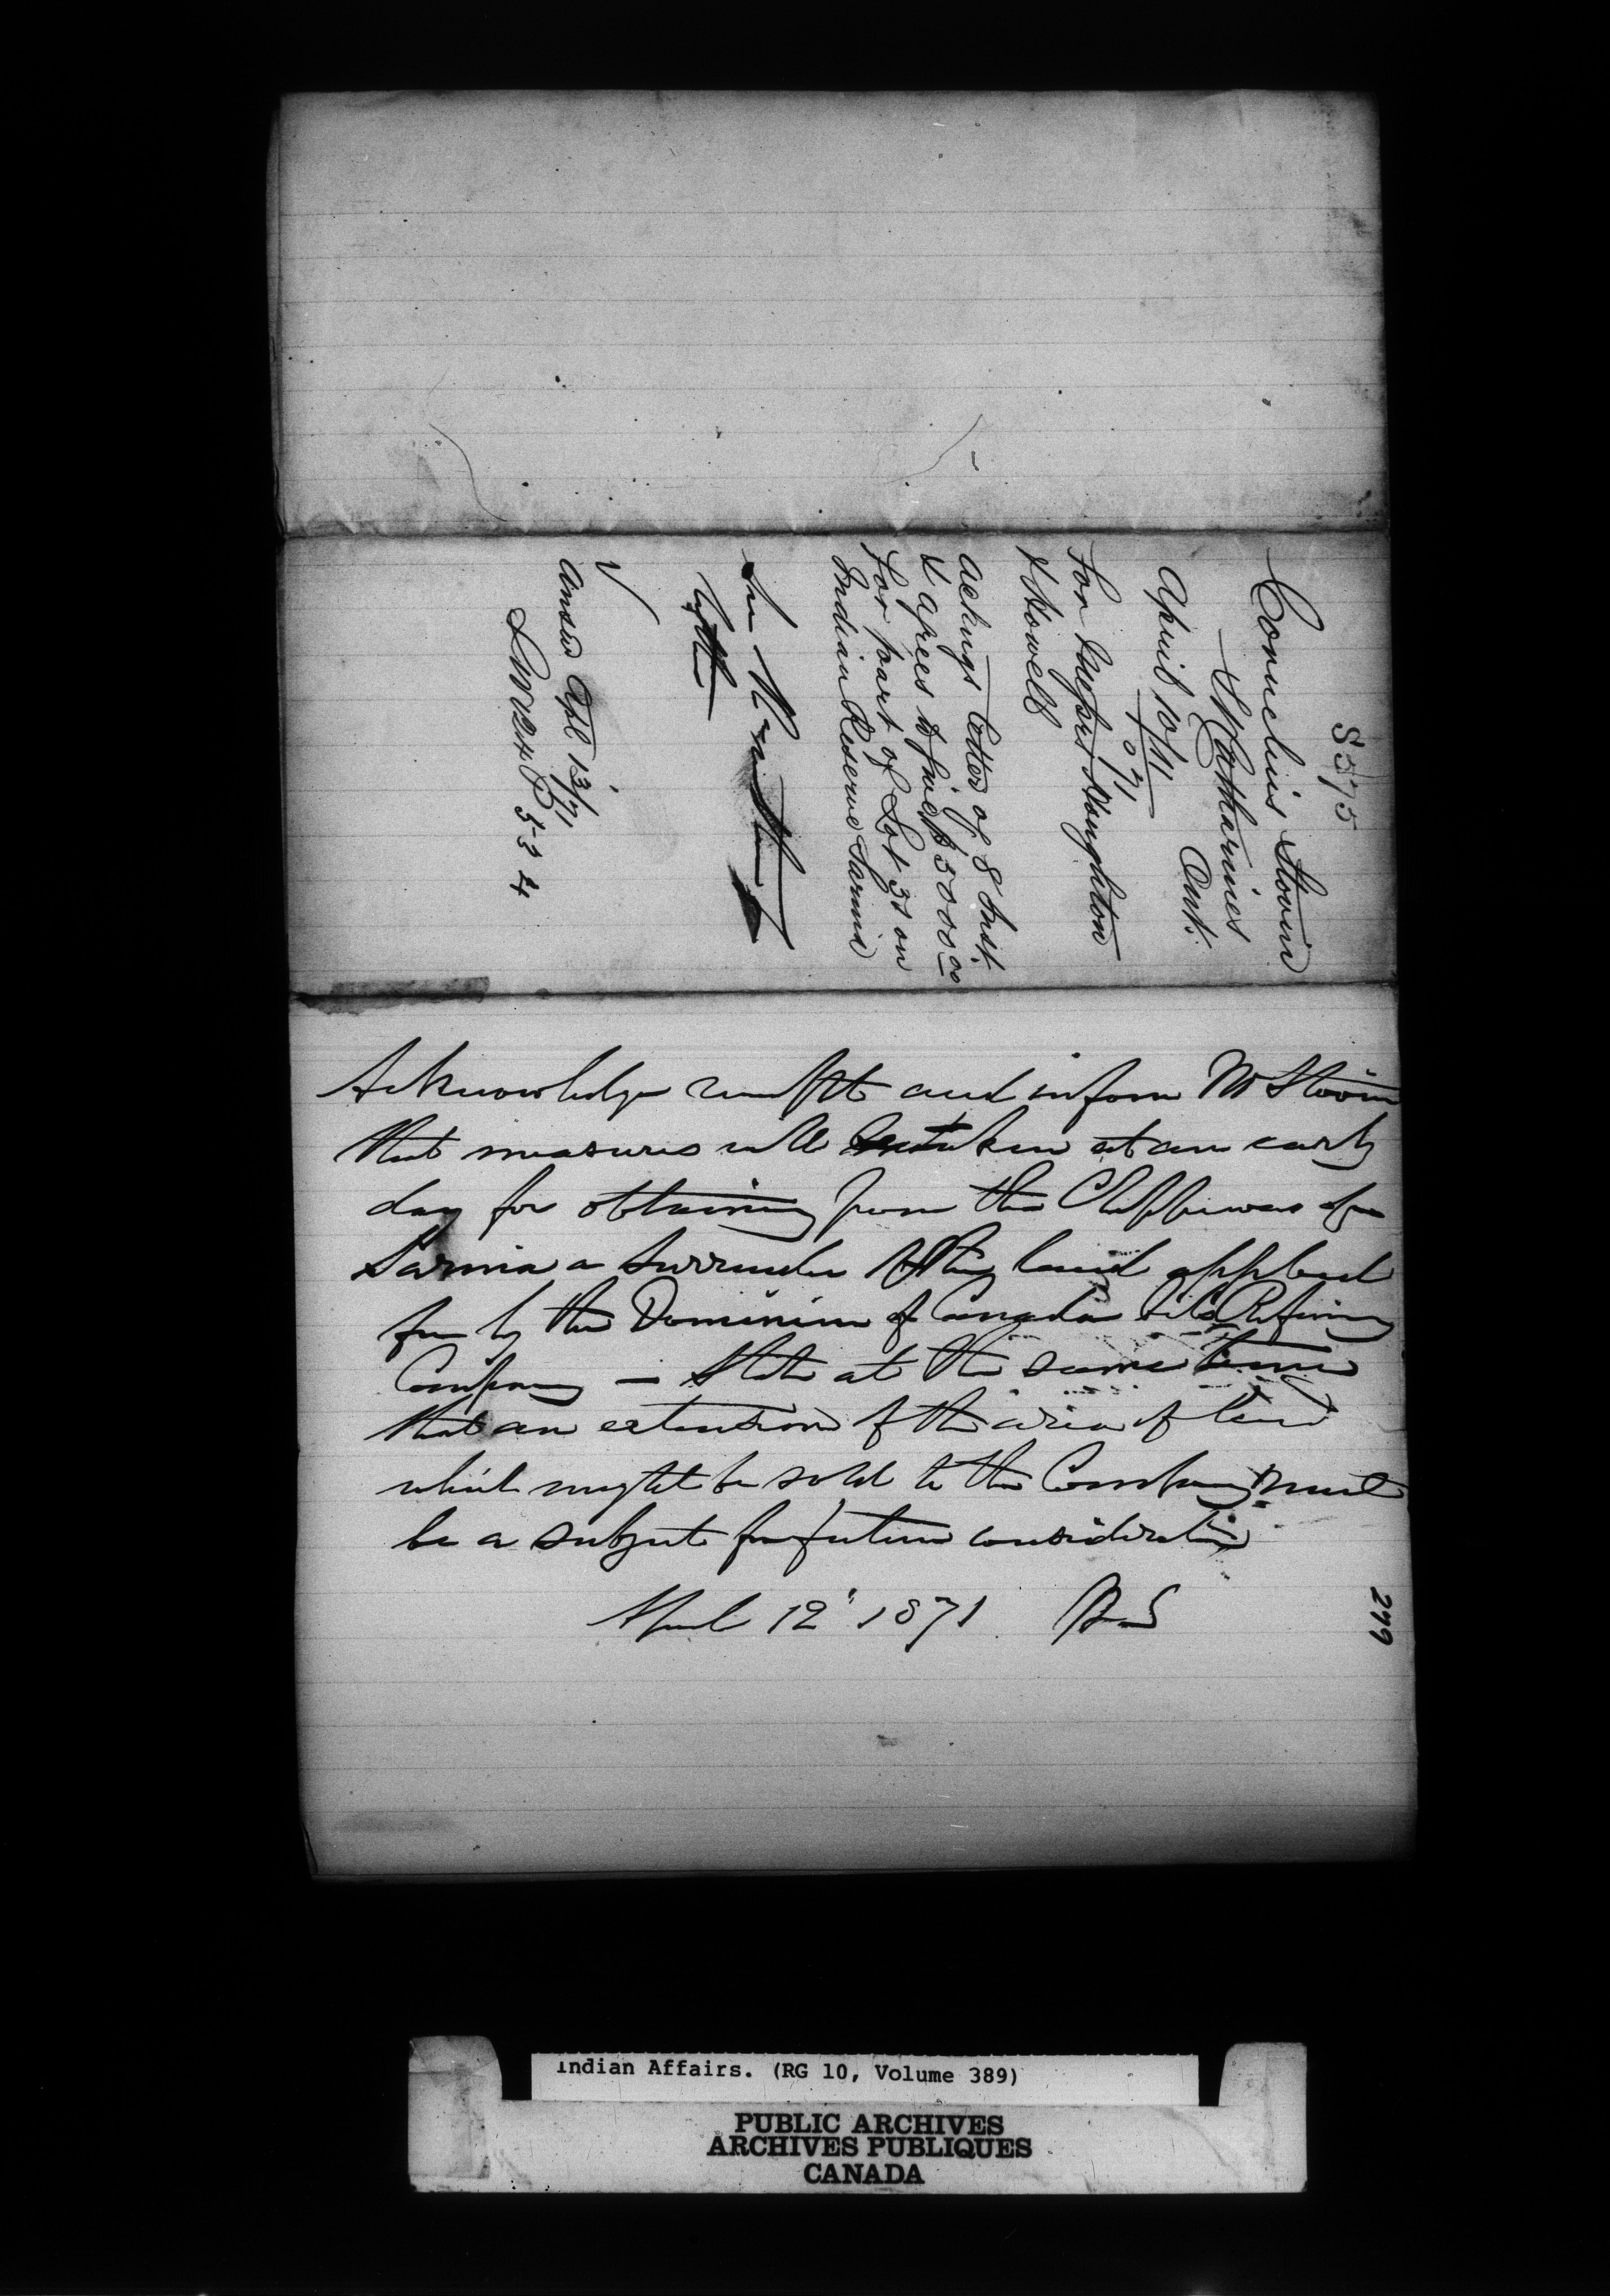 8575
Cornelius Stovin
St Catharines
Ont.
April 10/71
For Messrs Houghton
& Howell
Ackngs letter of 8 Inst
& agrees to give $5000.00
for part of Lot 30 on
Indian Reserve Sarnia
Ansd Apl 13/71
534
Acknowledge receipt and inform Mr Stovin
that measures will be taken at an early
day for obtaining from the Chippewas of
Sarnia a surrender of the land applied
for by the Dominion of Canada Oil Refining
Company — State at the same time
that an extension of the area of land
which might be sold to the Company must
be a subject for future consideration
April 12" 1871
279
Indian Affairs. (RG 10, Volume 389)
PUBLIC ARCHIVES
ARCHIVES PUBLIQUES
CANADA